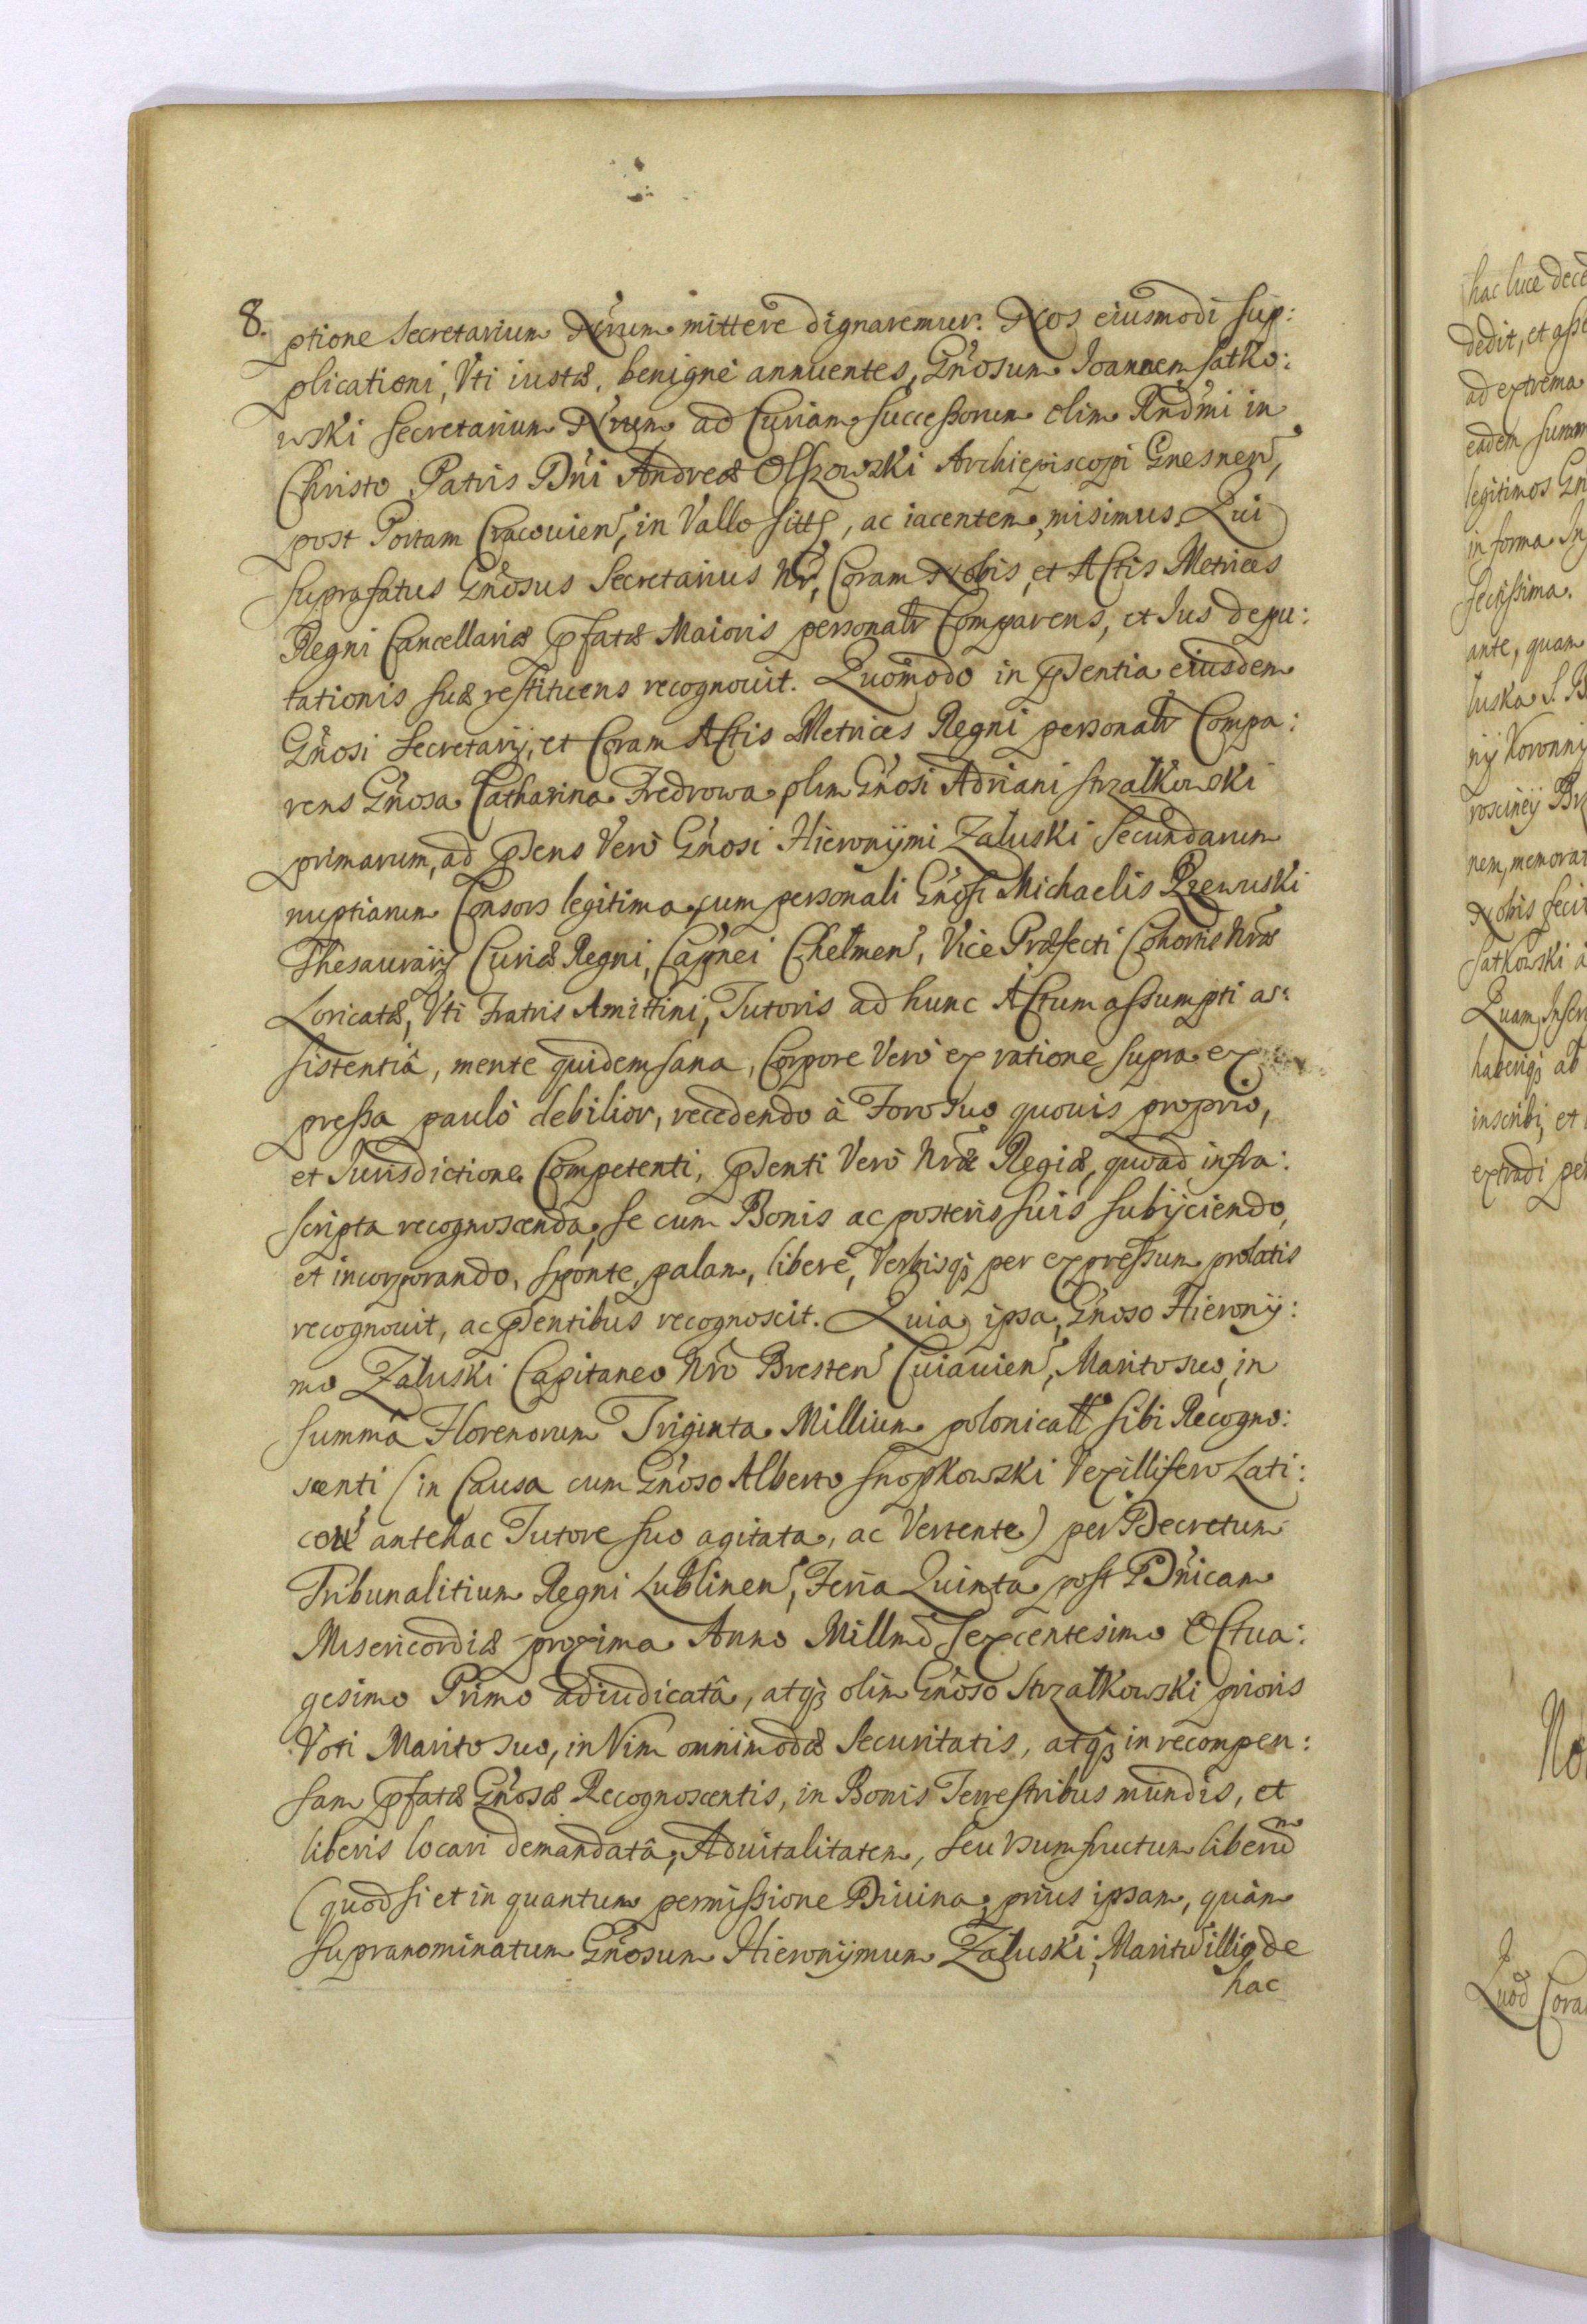 8.
ptione Secretarium Nrum mittere dignaremur. Nos eiusmodi sup:
plicationi, Vti iustæ, benignè annuentes, Gnosum Ioannem Satko:
wski Secretarium Nrum ad Curiam Successorum olim Rndmi in
Christo Patris Dni Andreæ Olszowski Archiepiscopi Gnesnen,
post Portam Cracouien, in Vallo sitt, ac iacentem, misimus. Qui
suprafatus Gnosus Secretarius Nr, Coram Nobis, et Actis Metrices
Regni Cancellariæ pfatæ Maioris personalr Comparens, et Ius depu:
tationis suæ restituens recognouit. Quomodo in pdentia eiusdem
Gnosi Secretarij, et Coram Actis Metrices Regni personalr Compa:
rens Gnosa Catharina Fredrowa olim Gnosi Adriani Strzałkowski
primarum, ad pdens Verò Gnosi Hieronÿmi Zaluski Secundarum
nuptiarum Consors legitima, cum personali Gnosi Michaelis Rzewuski
Thesaurarij Curiæ Regni, Capnei Chełmen, Vice Præfecti Cohortis Nræ
Loricatæ, Vti Fratris Amittini, Tutoris ad hunc Actum assumpti as:
sistentiâ, mente quidem sana, Corpore Verò ex ratione supra ex
pressa paulò debilior, recedendo à Foro suo quouis proprio,
et Iurisdictione Competenti, pdenti Verò Nræ Regiæ, quoad infra:
scripta recognoscenda, se cum Bonis ac posteris suis subijciendo,
et incorporando, sponte, palam, liberè, Verbisq; per expressum prolatis
recognouit, ac pdentibus recognoscit. Quia ipsa, Gnoso Hieronÿ:
mo Zaluski Capitaneo Nro Bresten Cuiauien, Marito suo, in
summâ Florenorum Triginta Millium polonicall sibi Recogno:
scenti (in Causa cum Gnoso Alberto Snopkowski Vexillifero Lati:
couien antehac Tutore suo agitata, ac Vertente) per Decretum
Tribunalitium Regni Lublinen, Feria Quinta post Dnicam
Misericordiæ proxima Anno Millmo Sexcentesimo Octua:
gesimo Primo adiudicatâ, atq; olim Gnoso Strzałkowski prioris
Voti Marito suo, in Vim omnimodæ Securitatis, atq; in recompen:
sam pfatæ Gnosæ Recognoscentis, in Bonis Terrestribus mundis, et
liberis locari demandatâ, Aduitalitatem, seu Vsumfructum liberum
(quod si et in quantum permissione Diuina, prius ipsam, quàm
supranominatum Gnosum Hieronÿmum Zaluski, Maritu illig de
hac